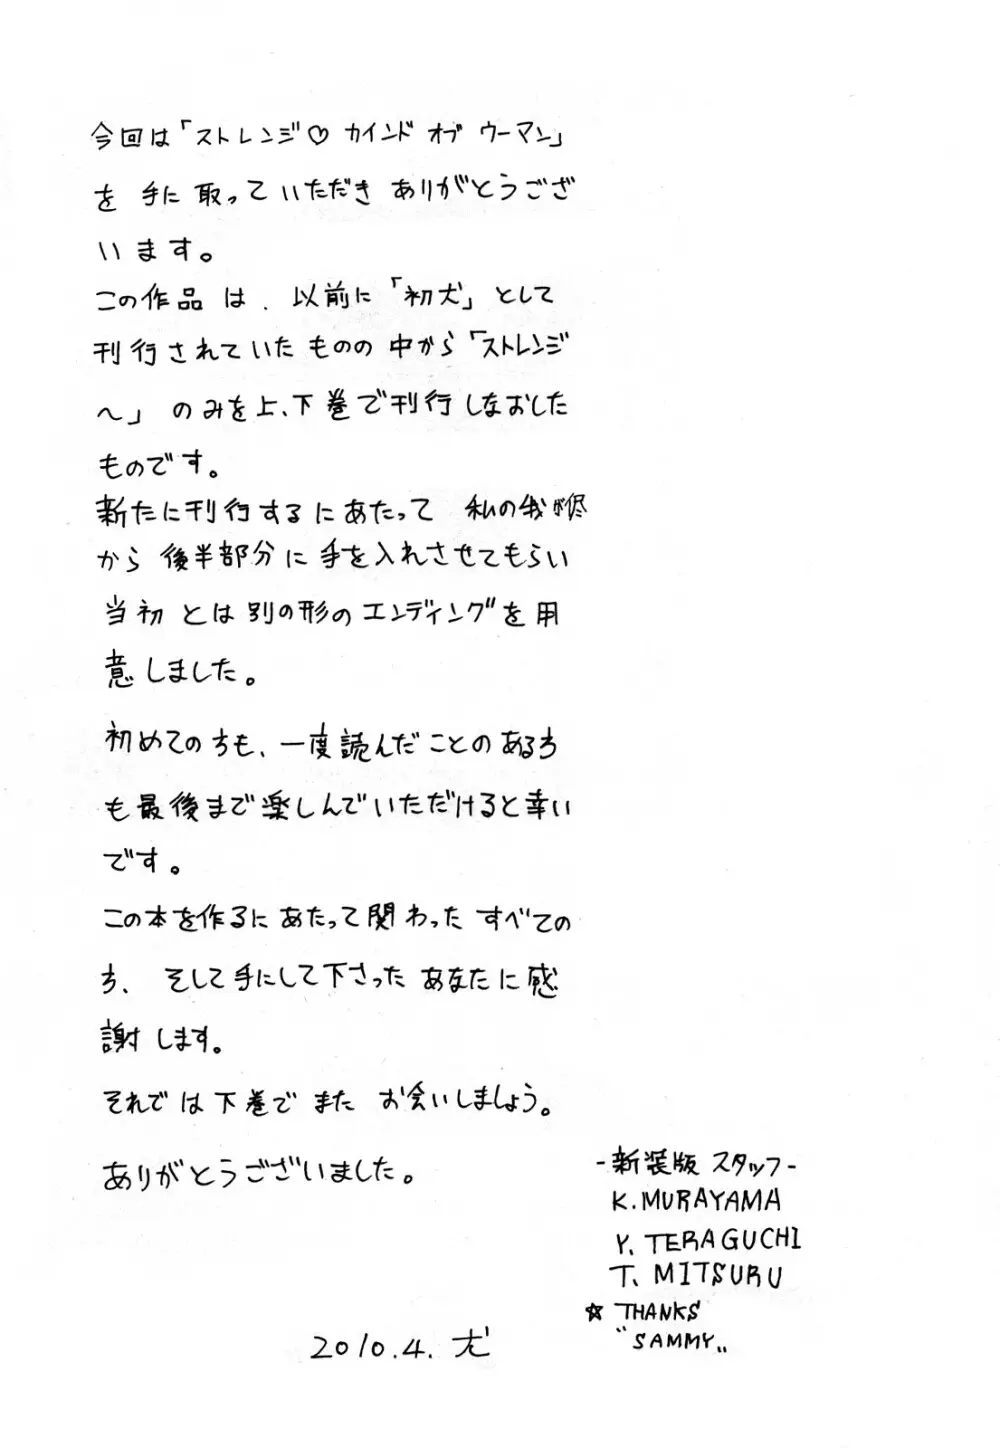 今回は「ストレンジ♡カインド オブ ウーマン」
を 手に 取って いただき ありがとうござ
います。
この作品 は、以前に「初犬」として
刊行されていた ものの 中から「ストレンジ
〜」のみを上、下巻で刊行しなおした
ものです。
新たに刊行するにあたって 私の我が侭
から 後半部分に 手を入れさせてもらい
当初 とは 別の形の エンディングを用
意しました。
初めての方も、一度読んだことのある方
も最後まで楽しんでいただけると幸い
です。
この本を作るに あたって関わった すべての
方、そして手にして下さった あなたに感
謝します。
それでは下巻で また お会いしましょう。
ありがとうございました。
-新装版 スタッフ-
K.MURAYAMA
Y.TERAGUCHI
T.MITSURU
☆ THANKS
"SAMMY"
2010.4.